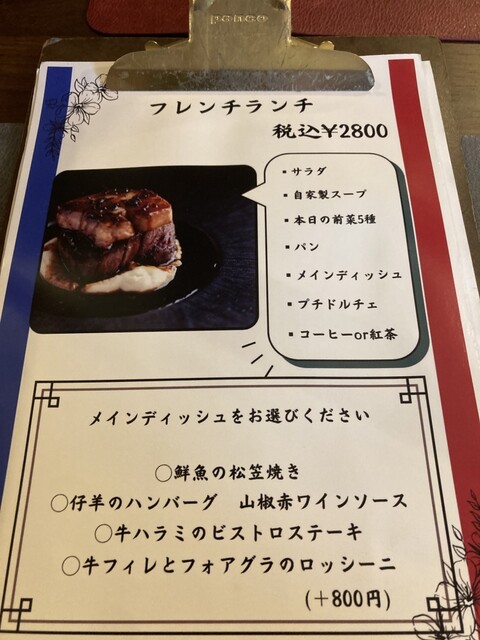 フレンチランチ
税込¥2800
▪サラダ
▪自家製スープ
▪本日の前菜5種
▪パン
▪メインディッシュ
▪プチドルチェ
▪コーヒーor紅茶
メインディッシュをお選びください
○鮮魚の松笠焼き
○仔羊のハンバーグ　山椒赤ワインソース
○牛ハラミのビストロステーキ
○牛フィレとフォアグラのロッシーニ
(+800円)